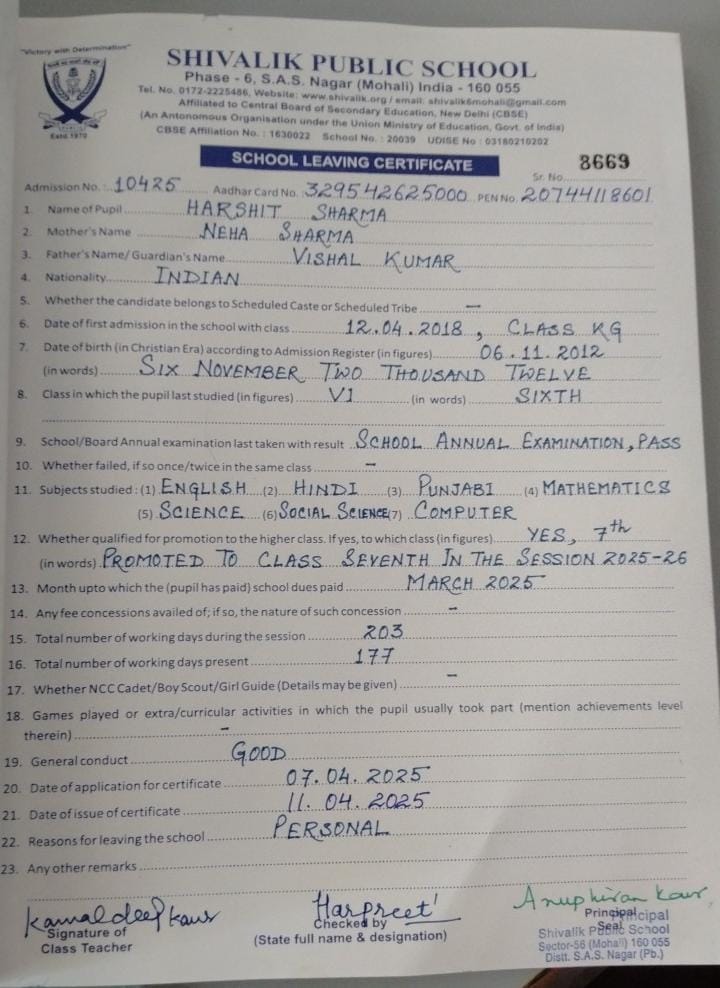 "Victory with Determination"
Estd.1970
SHIVALIK PUBLIC SCHOOL
Phase - 6, S.A.S. Nagar (Mohali) India - 160 055
Tel. No. 0172-2225486, Website: www.shivalik.org / email: shivalik6mohali@gmail.com
Affiliated to Central Board of Secondary Education, New Delhi (CBSE)
(An Antonomous Organisation under the Union Ministry of Education, Govt. of India)
CBSE Affiliation No. : 1630022 School No. : 20039 UDISE No : 03180210202
SCHOOL LEAVING CERTIFICATE
Sr. No. 8669
Admission No. : 10425 Aadhar Card No. 329542625000 PEN No. 20744118601
1. Name of Pupil HARSHIT SHARMA
2. Mother's Name NEHA SHARMA
3. Father's Name/ Guardian's Name VISHAL KUMAR
4. Nationality INDIAN
5. Whether the candidate belongs to Scheduled Caste or Scheduled Tribe –
6. Date of first admission in the school with class 12.04.2018, CLASS KG
7. Date of birth (in Christian Era) according to Admission Register (in figures) 06.11.2012
(in words) SIX NOVEMBER TWO THOUSAND TWELVE
8. Class in which the pupil last studied (in figures) VI (in words) SIXTH
9. School/Board Annual examination last taken with result SCHOOL ANNUAL EXAMINATION, PASS
10. Whether failed, if so once/twice in the same class –
11. Subjects studied : (1) ENGLISH (2) HINDI (3) PUNJABI (4) MATHEMATICS
(5) SCIENCE (6) SOCIAL SCIENCE (7) COMPUTER
12. Whether qualified for promotion to the higher class. If yes, to which class (in figures) YES, 7th
(in words) PROMOTED TO CLASS SEVENTH IN THE SESSION 2025-26
13. Month upto which the (pupil has paid) school dues paid MARCH 2025
14. Any fee concessions availed of; if so, the nature of such concession –
15. Total number of working days during the session 203
16. Total number of working days present 177
17. Whether NCC Cadet/Boy Scout/Girl Guide (Details may be given) –
18. Games played or extra/curricular activities in which the pupil usually took part (mention achievements level
therein) –
19. General conduct GOOD
20. Date of application for certificate 07.04.2025
21. Date of issue of certificate 11.04.2025
22. Reasons for leaving the school PERSONAL
23. Any other remarks
Kamaldeep Kaur Harpreet Anupkiran Kaur
Signature of
Class Teacher
Checked by
(State full name & designation)
Principal
Seal
Principal
Shivalik Public School
Sector-56 (Mohali) 160 055
Distt. S.A.S. Nagar (Pb.)